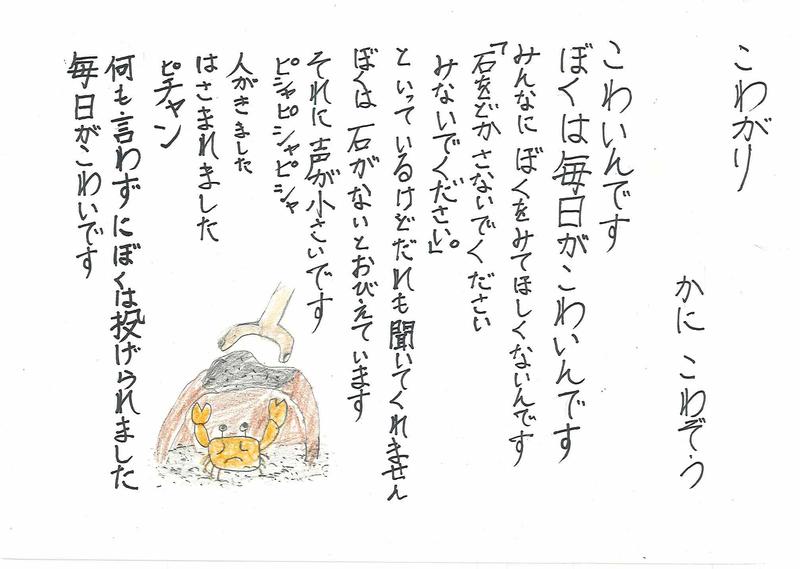 こわがり
かに こわぞう
こわいんです
ぼくは毎日がこわいんです
みんなに ぼくをみてほしくないんです
「石をどかさないでください
みないでください。」
といっているけどだれも聞いてくれません
ぼくは 石がないとおびえています
それに 声が小さいです
ピシャピシャピシャ
人がきました
はさまれました
ピチャン
何も言わずにぼくは投げられました
毎日がこわいです